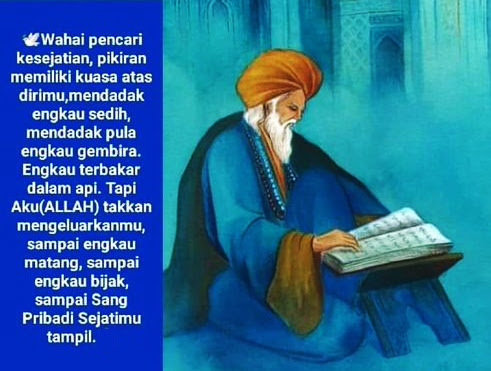 🕊Wahai pencari
kesejatian, pikiran
memiliki kuasa atas
dirimu,mendadak
engkau sedih,
mendadak pula
engkau gembira.
Engkau terbakar
dalam api. Tapi
Aku(ALLAH) takkan
mengeluarkanmu,
sampai engkau
matang, sampai
engkau bijak,
sampai Sang
Pribadi Sejatimu
tampil.